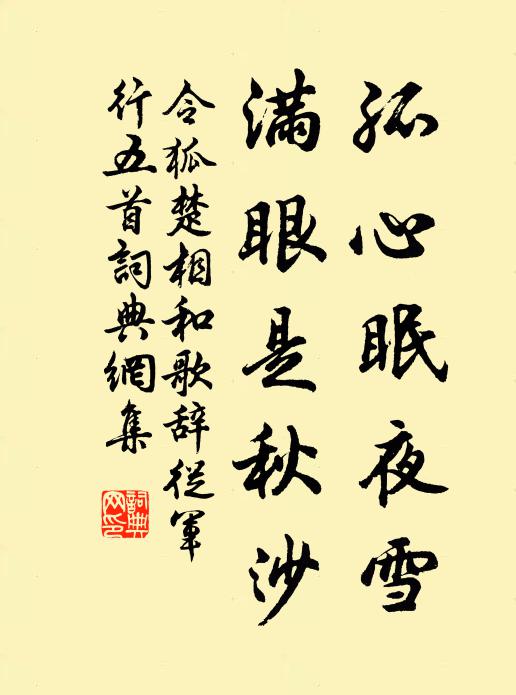 孤心眠夜雪
满眼是秋沙
令狐楚相和歌辞從軍
行五首詞典網集
詞典
网印